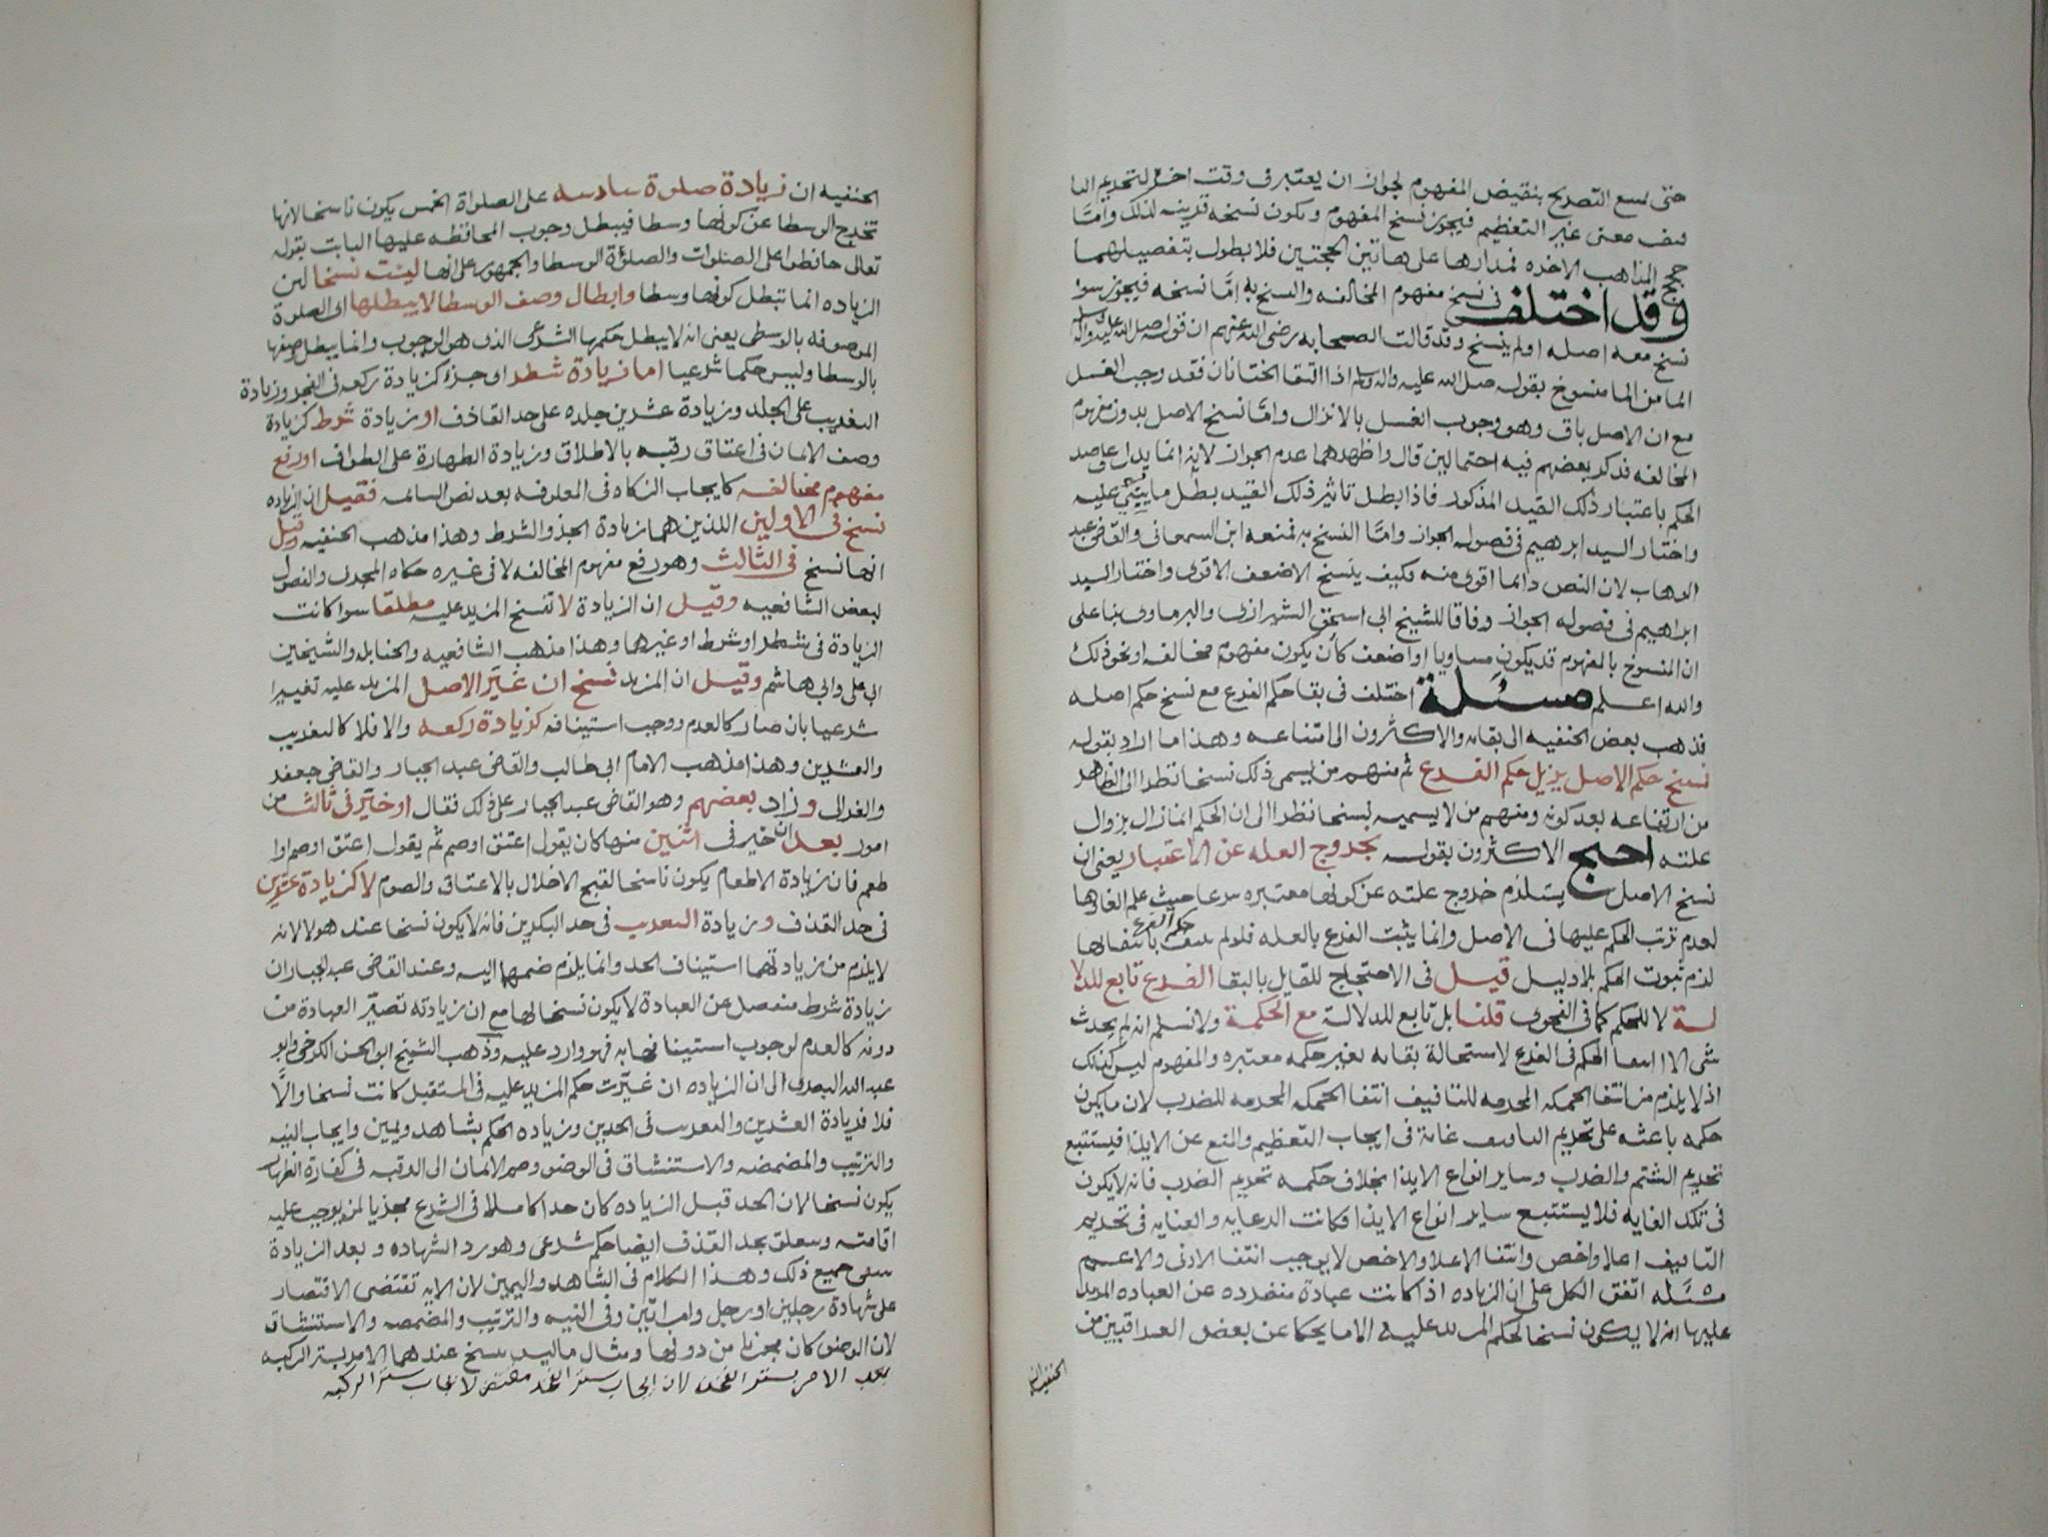 حتى لسع التصريح بنقيض المفهوم لجواز ان يعتبر فى وقت اخر لتحريم التا
ليف معنى غير التعظيم فيجوز نسخ المفهوم ويكون نسخه قرينه لذلك وامّا
حجج المذاهب الاخره فمدارها على هاتين الحجتين فلا بطول بتفصيلهما
وقد اختلف فى نسخ مفهوم المخالفه والنسخ به امّا نسخه فيجوز سوا
نسخ معه اصله او لم ينسخ وقد قالت الصحابه رضى الله عنهم ان قوله صلى الله عليه واله وسلم
الما من الما منسوخ بقوله صلى الله عليه واله وسلم اذا التقا الختانان فقد وجب الغسل
مع ان الاصل باق وهو وجوب الغسل بالانزال وامّا نسخ الاصل بدون مفهوم
المخالفه فذكر بعضهم فيه احتمالين قال واظهرهما عدم الجواز لانه انما يدل على ضد
الحكم باعتبار ذلك القيد المذكور فاذا بطل تاثير ذلك القيد بطل ما يبتنى عليه
واختار السيد ابرهيم فى فصوله الجواز وامّا النسخ به فمنعه ابن السمعانى والقاضى عبد
الوهاب لان النص دائما اقوى منه فكيف ينسخ الاضعف الاقوى واختار السيد
ابراهيم فى فصوله الجواز وفاقا للشيخ ابى اسحق الشيرازى والبرماوى بنا على
ان المنسوخ بالمفهوم قد يكون مساويا او اضعف كأن يكون مفهوم مخالفه او نحو ذلك
والله اعلم مسئلة اختلف فى بقا حكم الفرع مع نسخ حكم اصله
فذهب بعض الحنفيه الى بقائه والاكثرون الى امتناعه وهذا ما اراد بقوله
نسخ حكم الاصل يزيل حكم الفرع ثم منهم من يسمى ذلك نسخا نظرا الى الظاهر
من ارتفاعه بعد كونه ومنهم من لا يسميه نسخا نظرا الى ان الحكم انما زال بزوال
علته احتج الاكثرون بقوله بخروج العله عن الاعتبار يعنى ان
نسخ الاصل يستلزم خروج علته عن كونها معتبره شرعا حيث علم الغاوها
لعدم ترتب الحكم عليها فى الاصل وانما يثبت الفرع بالعله فلو لم ينتف حكم الفرع بانتفائها
لزم ثبوت الحكم بلا دليل قيل فى الاحتجاج للقايل بالبقا الفرع تابع للدلا
لة لا للحكم كما فى الفحوى قلنا بل تابع للدلالة مع الحكمة ولا نسلم انه لم يحدث
شى الا انتفا الحكم فى الفرع لاستحالة بقائه بغير حكمه معتبره والمفهوم ليس كذلك
اذ لا يلزم من انتفا الحكمه المحرمه للتافيف انتفا الحكمه المحرمه للضرب لان ما يكون
حكمه باعثه على تحريم التافيف غاية فى ايجاب التعظيم والمنع عن الايذا فيستتبع
تحريم الشتم والضرب وساير انواع الايذا بخلاف حكمه تحريم الضرب فانه لا يكون
فى تلك الغايه فلا يستتبع ساير انواع الايذا فكانت الرعايه والعنايه فى تحريم
التافيف اعلا واخص وانتفا الاعلا والاخص لا يوجب انتفا الادنى والاعم
مسئله اتفق الكل على ان الزياده اذا كانت عبادة منفرده عن العباده المزيد
عليها انه لا يكون نسخا لحكم المزيد عليه الا ما يحكا عن بعض العراقيين من
الحنفيه ان
الحنفيه ان زيادة صلوة سادسه على الصلواة الخمس يكون ناسخا لانها
تخرج الوسطا عن كونها وسطا فيبطل وجوب المحافظه عليها الثابت بقوله
تعالى حافظوا على الصلوات والصلوٰة الوسطا والجمهور على انها ليست نسخا لان
الزياده انما تبطل كونها وسطا وابطال وصف الوسطا لا يبطلها اى الصلوة
الموصوفه بالوسطى يعنى انه لا يبطل حكمها الشرعى الذى هو الوجوب وانما يبطل وصفها
بالوسطا وليس حكما شرعيا اما زيادة شطر او جزء كزيادة ركعه فى الفجر وزيادة
التغريب على الجلد وزيادة عشرين جلده على حد القاذف او زيادة شرط كزيادة
وصف الايمان فى اعتاق رقبه بالاطلاق وزيادة الطهارة على الطواف او رفع
مفهوم مخالفه كايجاب الزكاه فى المعلوفه بعد نص السائمه فقيل ان الزياده
نسخ فى الاولين اللذين هما زيادة الجز والشرط وهذا مذهب الحنفيه وقيل
انها نسخ فى الثالث وهو رفع مفهوم المخالفه لا فى غيره حكاه المجدى والفصول
لبعض الشافعيه وقيل ان الزيادة لا تنسخ المزيد عليه مطلقا سوا كانت
الزيادة فى شطر او شرط او غيرها وهذا مذهب الشافعيه والحنابله والشيخين
ابى على وابى هاشم وقيل ان المزيد نسخ ان غيّر الاصل المزيد عليه تغييرا
شرعيا بان صار كالعدم ووجب استينافه كزيادة ركعه والا فلا كالتغريب
والعشرين وهذا مذهب الامام ابى طالب والقاضى عبد الجبار والقاضى جعفر
والغزالى وزاد بعضهم وهو القاضى عبد الجبار على ذلك فقال او خيّر فى ثالث من
امور بعد ان خير فى اثنين منها كان يقول اعتق او صم ثم يقول اعتق او صم او ا
طعم فان زيادة الاطعام يكون ناسخا لقبح الاخلال بالاعتاق والصوم لا كزيادة عشرين
فى حد القذف وزيادة التغريب فى حد البكرين فانه لا يكون نسخا عند هولا لانه
لا يلزم من زيادتهما استيناف الحد وانما يلزم ضمهما اليه وعند القاضى عبد الجبار ان
زيادة شرط منفصل عن العبادة لا يكون نسخا لها مع ان زيادته تصيّر العبادة من
دونه كالعدم لوجوب استينافها به فهو وارد عليه وذهب الشيخ ابو الحسن الكرخى وابو
عبد الله البصرى الى ان الزياده ان غيّرت حكم المزيد عليه فى المستقبل كانت نسخا والّا
فلا فزيادة العشرين والتغريب فى الحدين وزياده الحكم بشاهد ويمين وايجاب النيه
والترتيب والمضمضه والاستنشاق فى الوضو وضم الايمان الى الرقبه فى كفارة الظهار
يكون نسخا لان الحد قبل الزياده كان حدا كاملا فى الشرع مجزيا لمن يوجب عليه
اقامته ويتعلق بحد القذف ايضا حكم شرعى وهو رد الشهاده وبعد الزيادة
ينتفى جميع ذلك وهذا الكلام فى الشاهد واليمين لان الايه تقتضى الاقتصار
على شهادة رجلين او رجل وامراتين وفى النيه والترتيب والمضمضه والاستنشاق
لان الوضو كان مجزيا من دونها ومثال ما ليس بنسخ عندهما الامر بستر الركبه
بعد الامر بستر الفخذ لان ايجاب ستر الفخذ مقتض لايجاب ستر الركبه